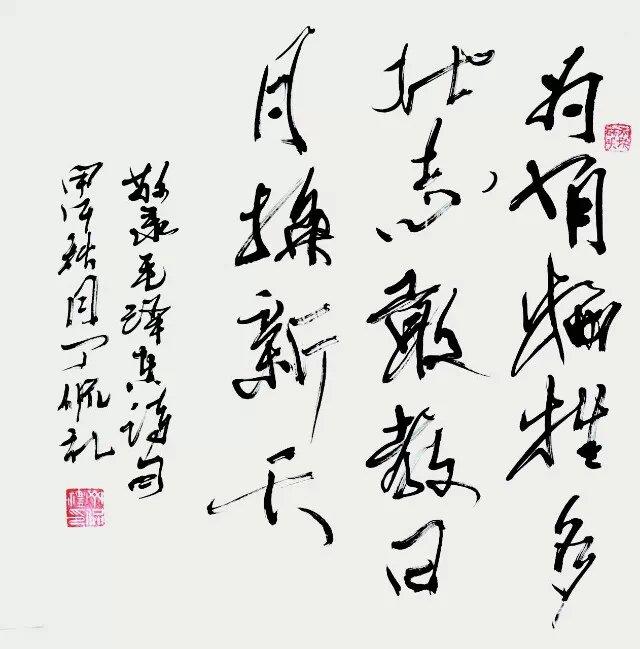 为有牺牲多
壮志敢教日
月换新天
敬录毛泽东诗句
秋月丁侃礼